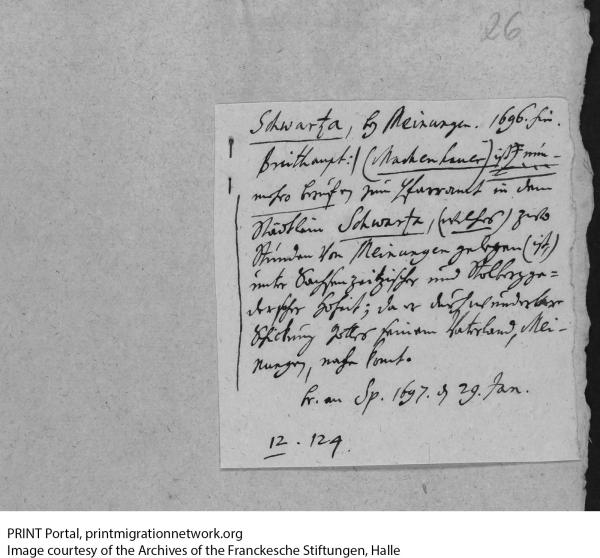 26
Schwartza, bey Meinungen. 1696.
Breithaupt:/ (Mackenhauer) ist nun-
mehro beruffen zum Pfarramt in dem
Städtlein Schwartza, (welches) zwo
Stunden von Meinungen gelegen (ist,)
unter Sachsenzeitzischer und Stolbergge-
derscher Hoheit; da er durch wunderbare
Schickung Gottes seinem Vaterland, Mei-
nungen, nahe komt.
br. an Sp. 1697. d 29. Jan.
12. 124.
PRINT Portal, printmigrationnetwork.org
Image courtesy of the Archives of the Franckesche Stiftungen, Halle